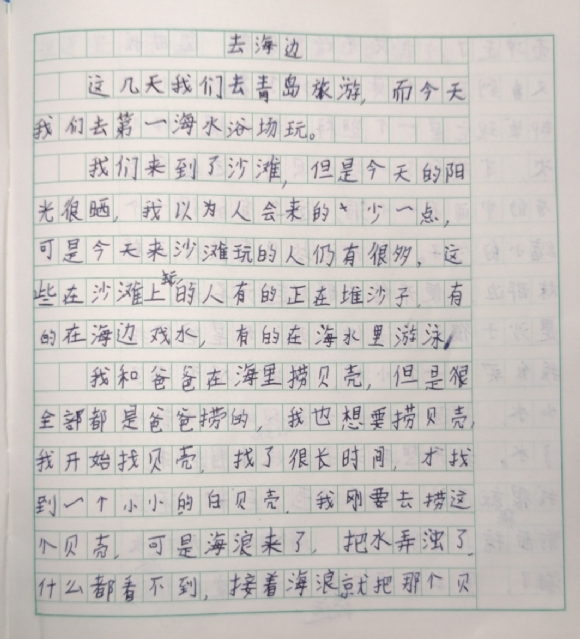 去海边
这几天我们去青岛旅游，而今天
我们去第一海水浴场玩。
我们来到了沙滩，但是今天的阳
光很晒，我以为人会来的少一点，
可是今天来沙滩玩的人仍有很多，这
些在沙滩上玩的人有的正在堆沙子，有
的在海边戏水，有的在海水里游泳，
我和爸爸在海里捞贝壳，但是很
全部都是爸爸捞的，我也想要捞贝壳，
我开始找贝壳，找了很长时间，才找
到一个小小的白贝壳，我刚要去捞这
个贝壳，可是海浪来了，把水弄浊了，
什么都看不到，接着海浪就把那个贝